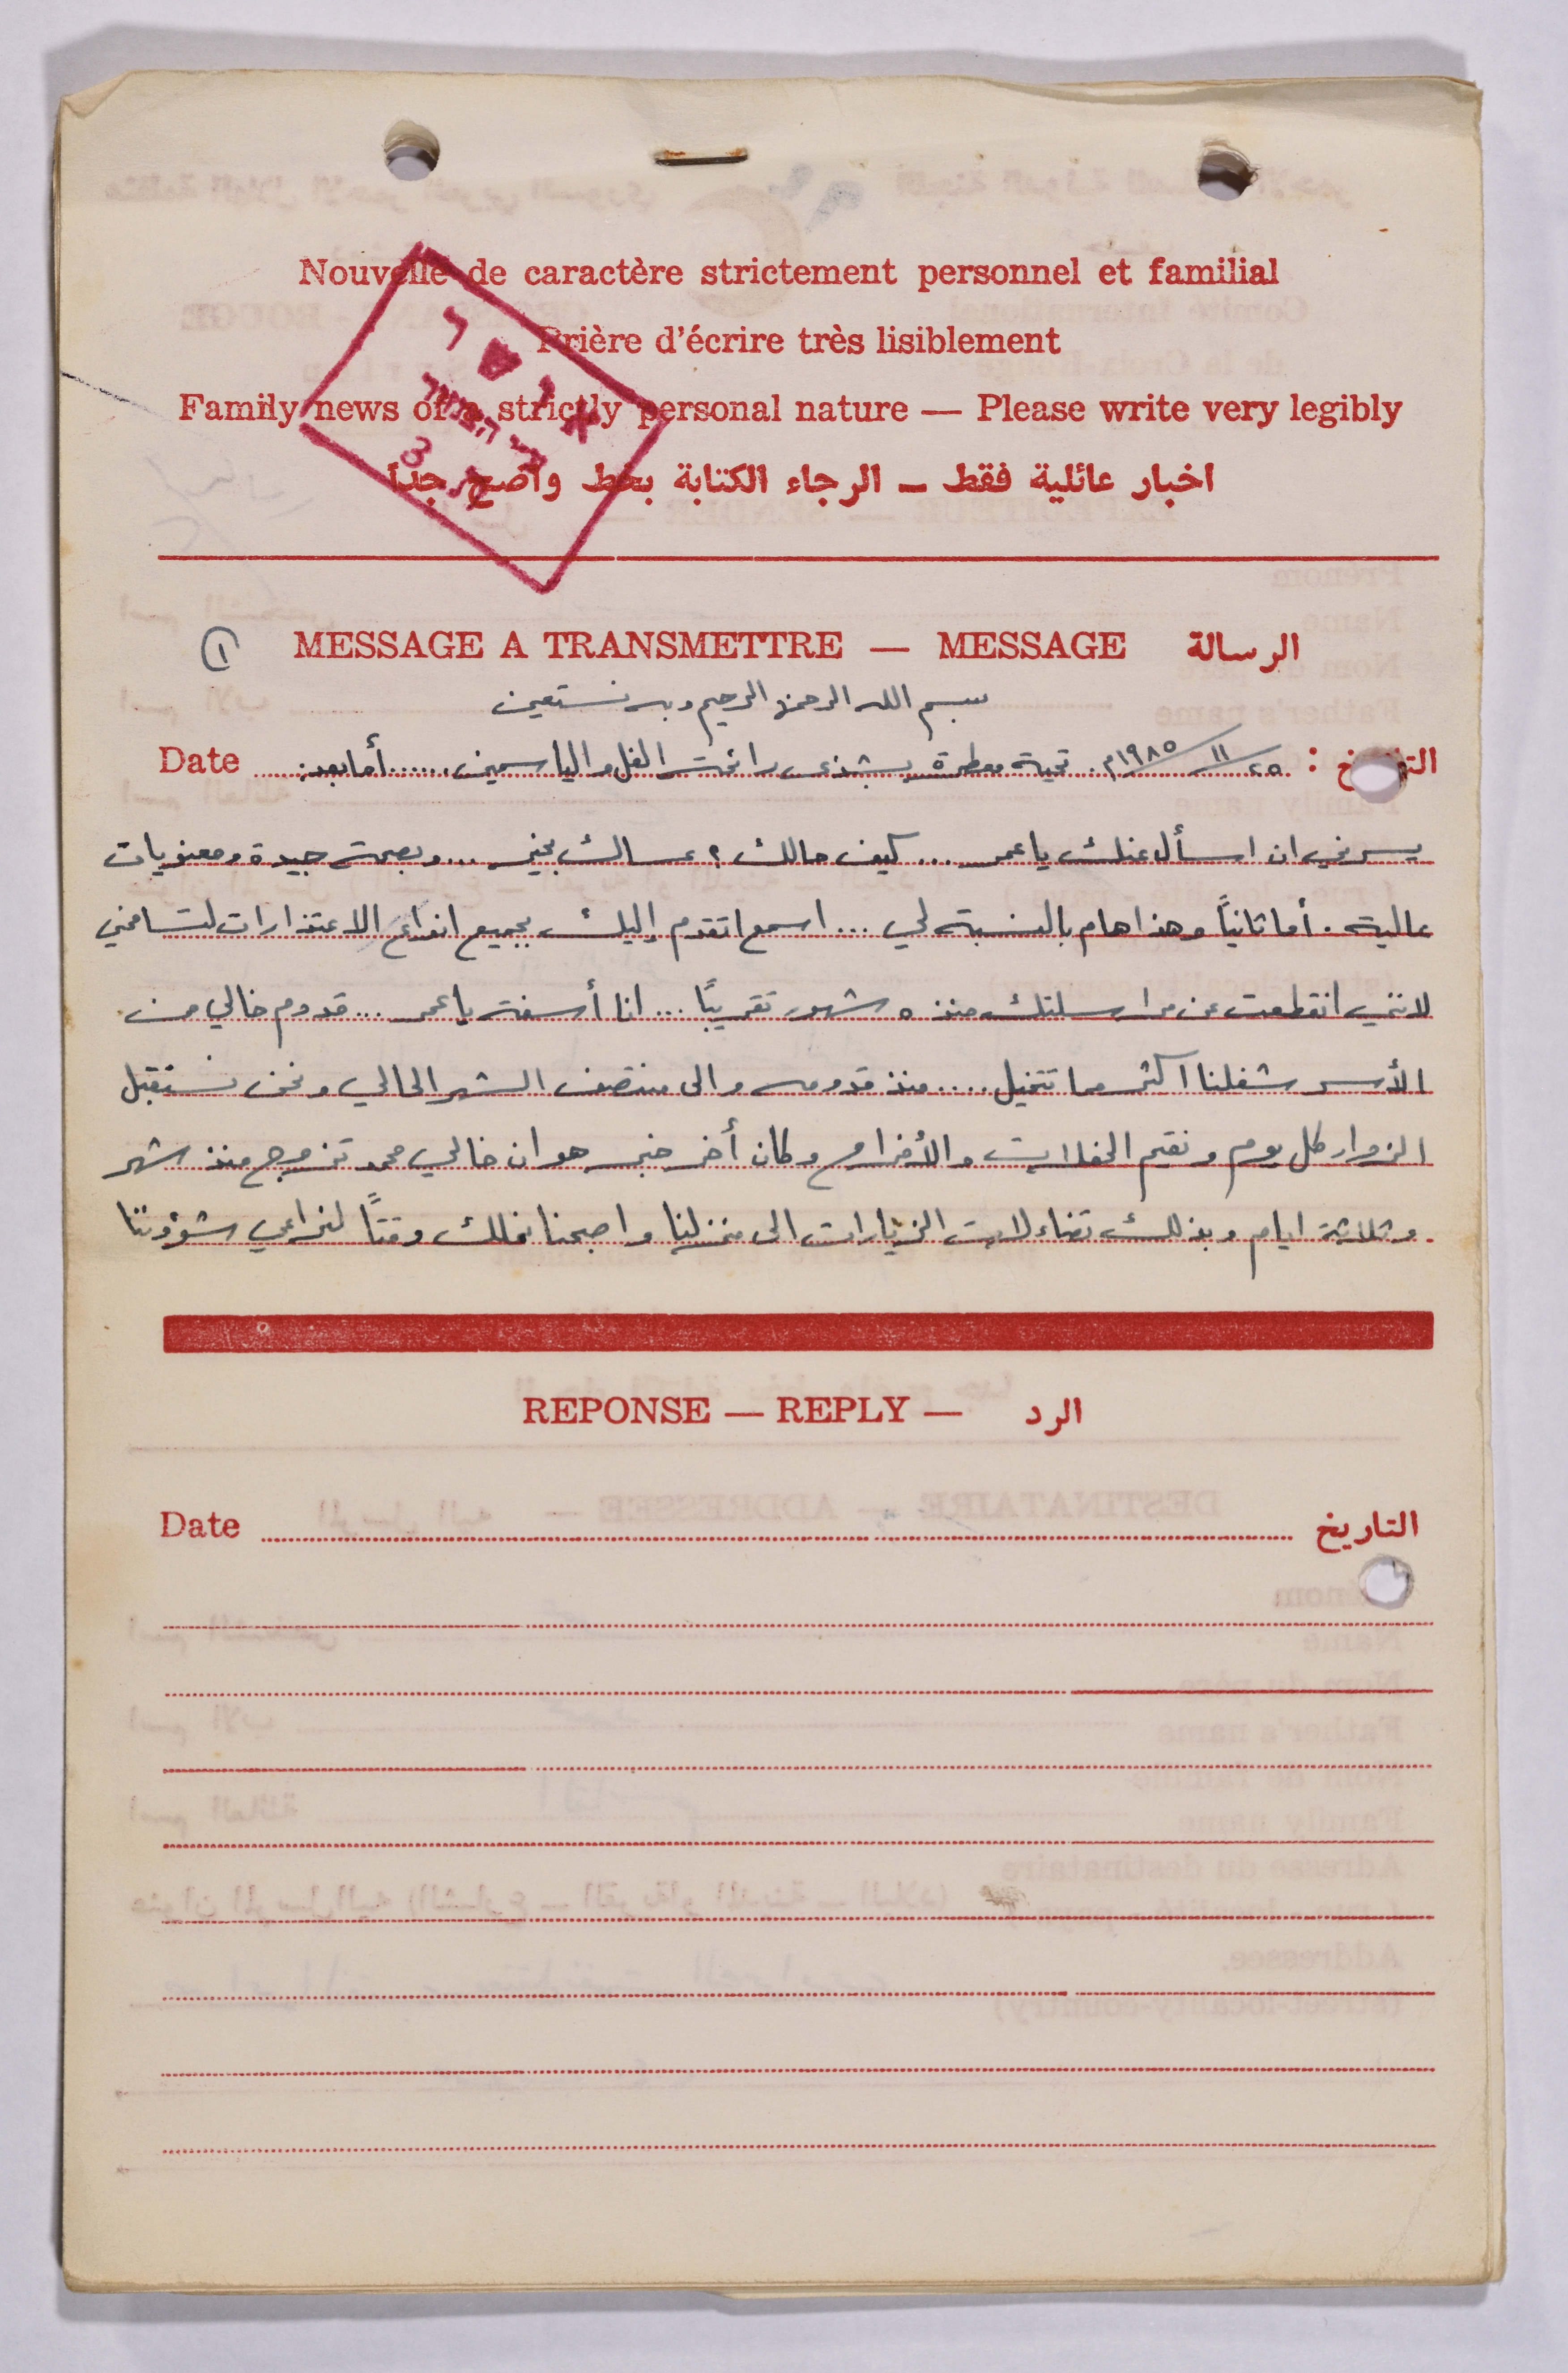 Nouvelle de caractère strictement personnel et familial
Prière d'écrire très lisiblement
Family news of a strictly personal nature — Please write very legibly
اخبار عائلية فقط — الرجاء الكتابة بخط واضح جدا
MESSAGE A TRANSMETTRE — MESSAGE الرسالة
١
بسم الله الرحمن الرحيم وبه نستعين
Date التاريخ : ٢٥/١١/١٩٨٥م. تحية معطرة بشذى رائحة الفل والياسمين...... أما بعد:
يسرني ان اسأل عنك يا عمر ... كيف حالك ؟ عساك بخير ... وبصحة جيدة ومعنويات
عالية . أما ثانياً وهذا هام بالنسبة لي ... اسمع اتقدم إليك بجميع انواع الاعتذارات لتسامحني
لانني انقطعت عن مراسلتك منذ ٥ شهور تقريبًا ... انا أسفة يا عمر ... قدوم خالي من
الأسر شغلنا اكثر مما تتخيل .... منذ قدومه والى منتصف الشهر الحالي ونحن نستقبل
الزوار كل يوم ونقيم الحفلات والأفراح وكان أخر خبر هو ان خالي محمد تزوج منذ شهر
وثلاثة ايام وبذلك تضاءلت الزيارات الى منزلنا واصبحنا نملك وقتاً لنراعي شؤوننا
REPONSE — REPLY — الرد
Date التاريخ